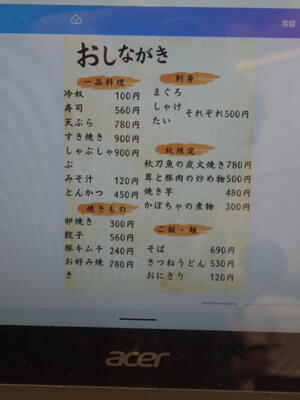 冷奴
おしながき
一品料理
冷奴 100円
寿司 560円
天ぷら 780円
すき焼き 900円
しゃぶしゃ900円
ぶ
みそ汁 120円
とんかつ 450円
焼きもの
卵焼き 300円
餃子 560円
豚キムチ 240円
お好み焼 780円
き
刺身
まぐろ
しゃけ それぞれ500円
たい
秋限定
秋刀魚の炭火焼き780円
茸と豚肉の炒め物500円
焼き芋 480円
かぼちゃの煮物 300円
ご飯・麺
そば 690円
きつねうどん 530円
おにぎり 120円
acer